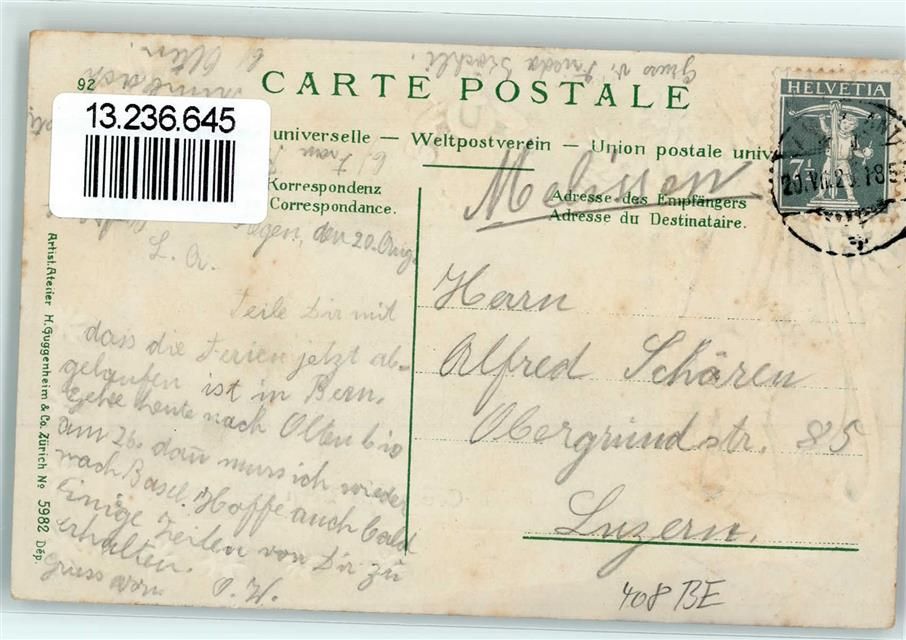 92
CARTE POSTALE
13.236.645
universelle — Weltpostverein — Union postale univ
Korrespondenz
Correspondance.
Adresse des Empfängers
Adresse du Destinataire.
HELVETIA
7½
den 20. Aug.
L. A.
Teile Dir mit
dass die Ferien jetzt ab-
gelaufen ist in Bern.
Gehe heute nach Olten bis
am 26. dann muss ich wieder
nach Basel. Hoffe auch bald
Einige Zeilen von Dir zu
erhalten.
Gruss vom P. W.
Gruss v. Frieda
Olten.
Herrn
Alfred Schären
Obergrundstr. 85
Luzern.
408 BE
Artist. Atelier H. Guggenheim & Co. Zürich No 5982 Dép.